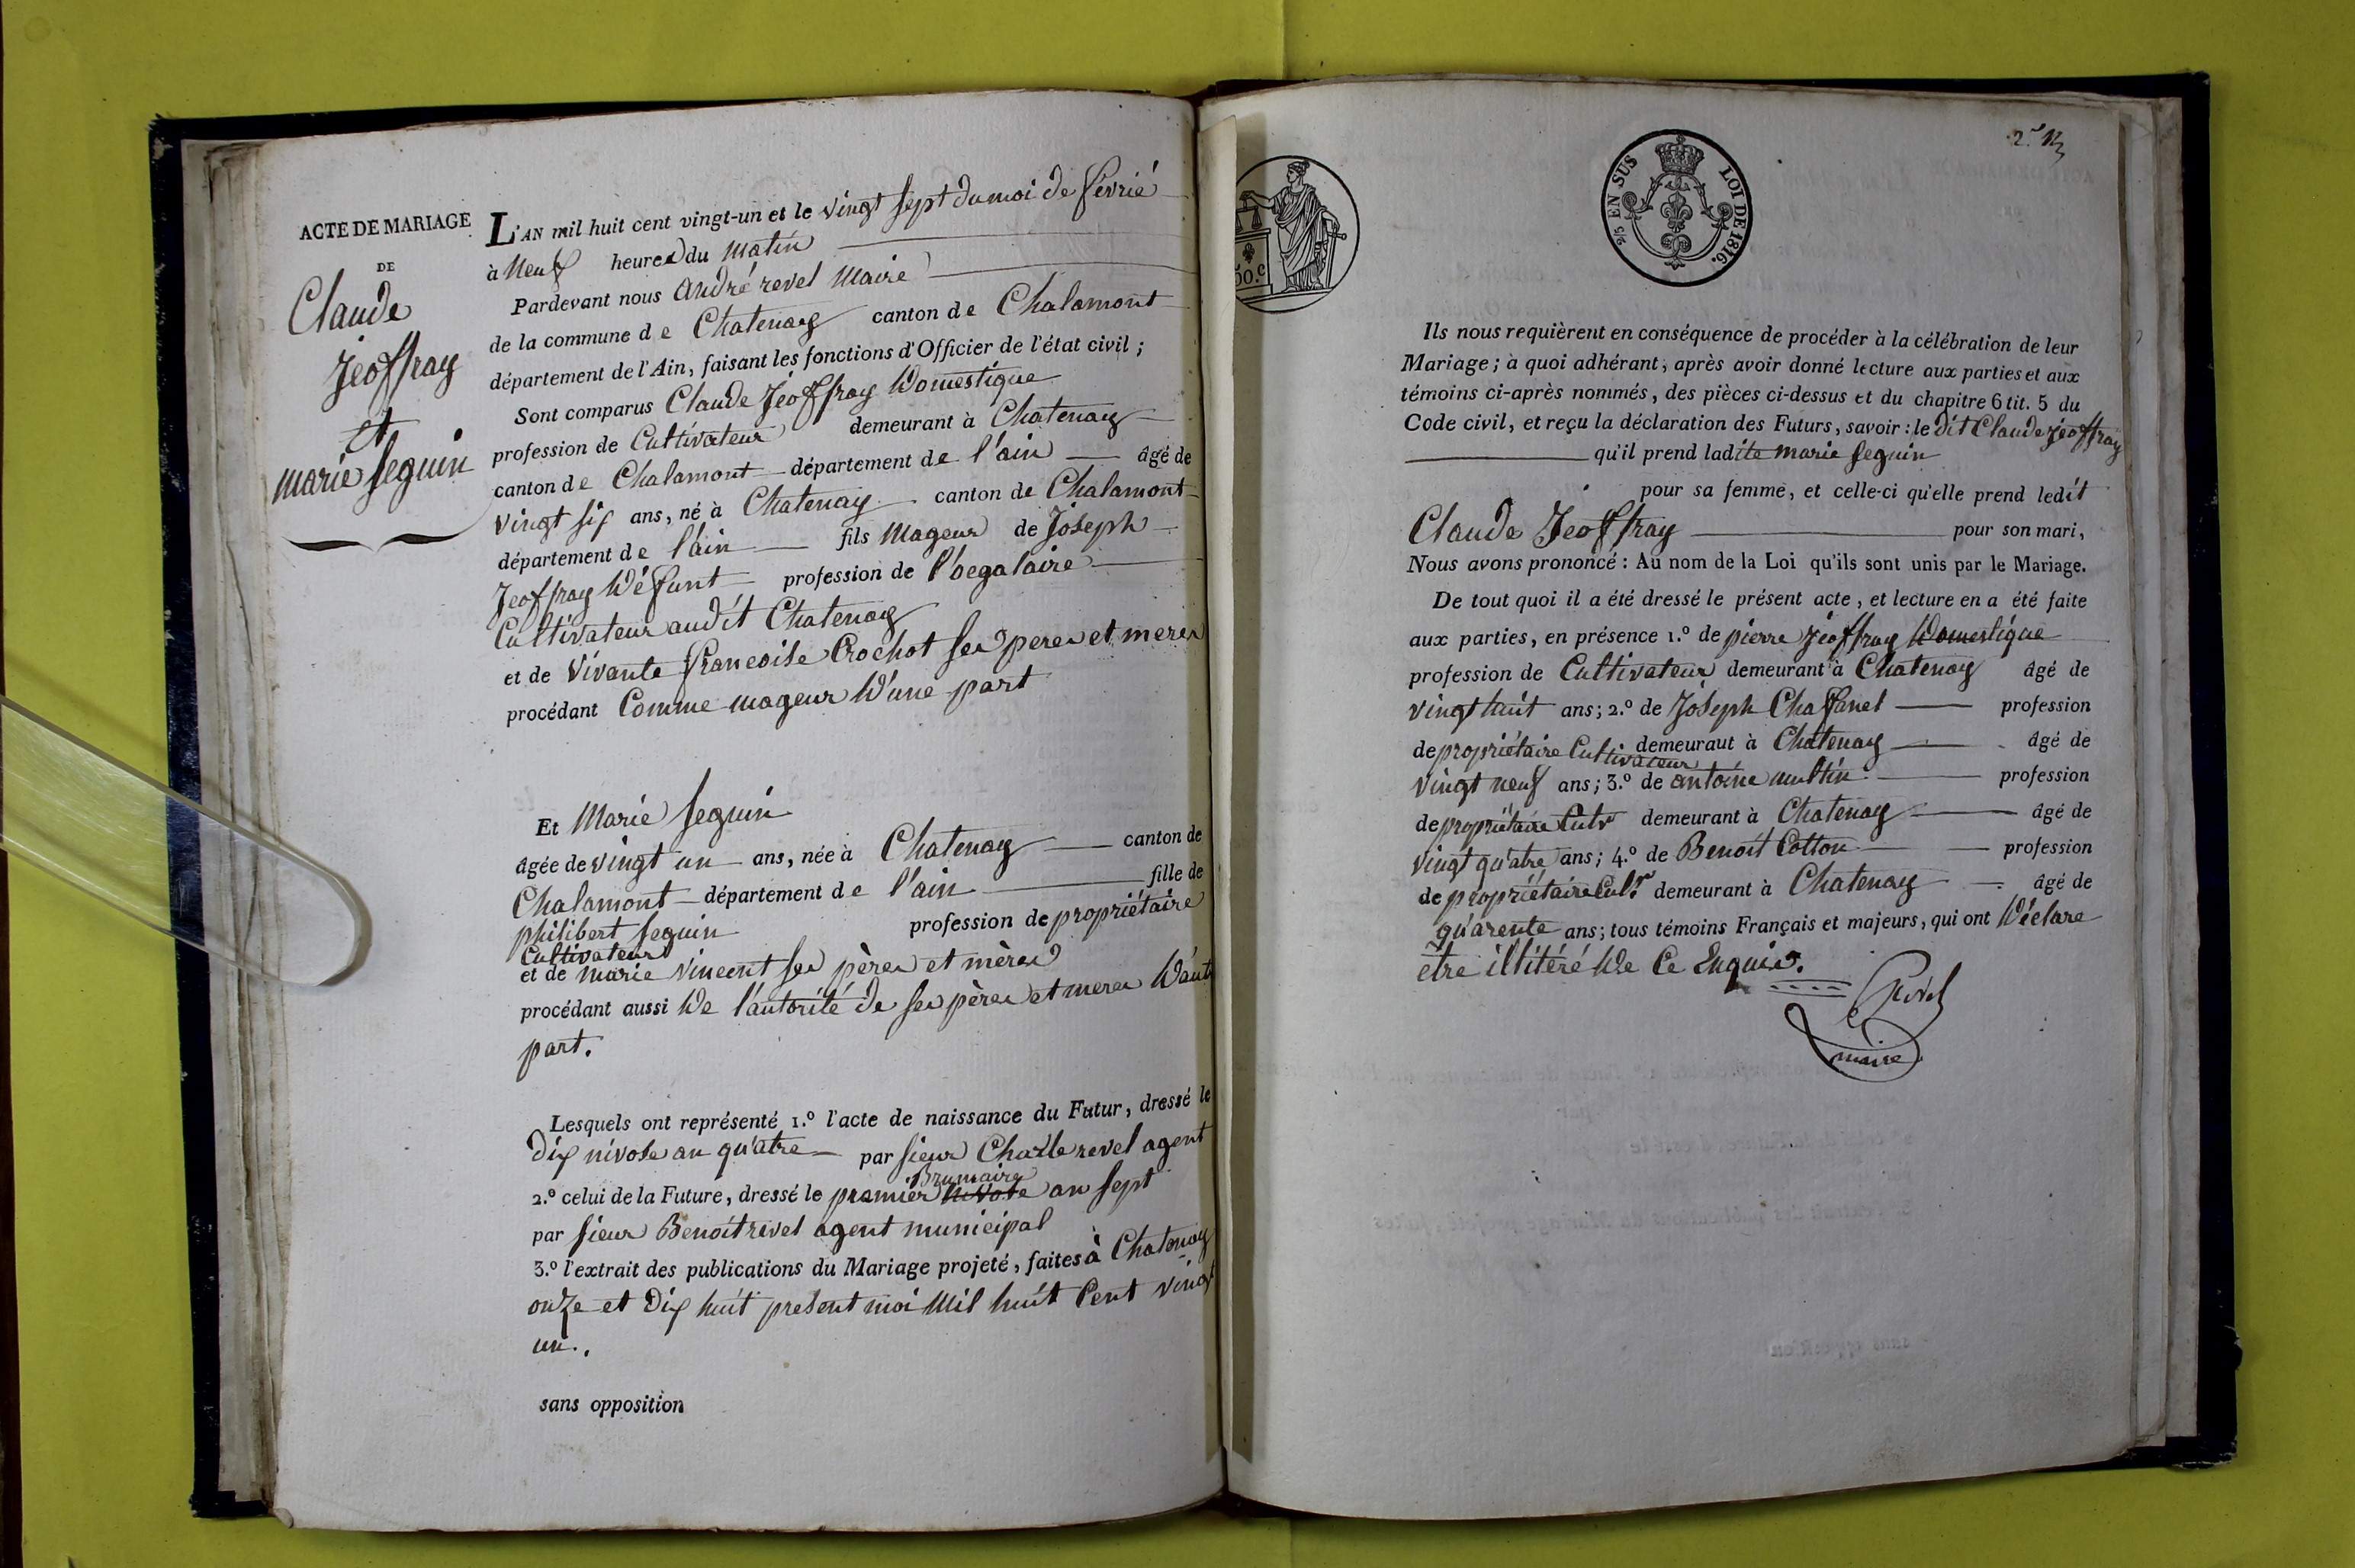 ACTE DE MARIAGE
DE
Claude
Jeoffray
et
marie seguin
L'AN mil huit cent vingt-un et le vingt sept du moi de févrié
à Neuf heures du matin
Pardevant nous André revel Maire
de la commune de Chatenay canton de Chalamont
département de l'Ain, faisant les fonctions d'Officier de l'état civil;
Sont comparus Claude Jéoffray Domestique
profession de Cultivateur demeurant à Chatenay
canton de Chalamont département de l'ain âgé de
vingt six ans, né à Chatenay canton de Chalamont
département de l'ain fils Mageur de Joseph
Jeoffray Défunt profession de
Cultivateur audit Chatenay
et de vivante francoise Crochot ses peres et meres
procédant Comme mageur D'une part
Et Marie seguin
âgée de vingt un ans, née à Chatenay canton de
Chalamont département de l'ain fille de
philibert seguin profession de propriétaire
Cultivateur
et de marie vincent ses pères et mères
procédant aussi De l'autorité de ses pères et meres D'aut
part.
Lesquels ont représenté 1.º l'acte de naissance du Futur, dressé le
Dix nivose an qu'atre par sieur Charle revel agent
Brumaire
2.º celui de la Future, dressé le premier nivose an sept
par sieur Benoit revel agent municipal
3.º l'extrait des publications du Mariage projeté, faites à Chatenay
onze et Dix huit present moi Mil huit Cent vingt
un..
sans opposition
50.c
2/5 EN SUS LOI DE 1816.
Ils nous requièrent en conséquence de procéder à la célébration de leur
Mariage; à quoi adhérant, après avoir donné lecture aux parties et aux
témoins ci-après nommés, des pièces ci-dessus et du chapitre 6 tit. 5 du
Code civil, et reçu la déclaration des Futurs, savoir: le dit Claude jeoffray
qu'il prend ladite marie seguin
pour sa femme, et celle-ci qu'elle prend ledit
Claude Jeoffray pour son mari,
Nous avons prononcé: Au nom de la Loi qu'ils sont unis par le Mariage.
De tout quoi il a été dressé le présent acte, et lecture en a été faite
aux parties, en présence 1.º de pierre jéoffray Domestique
profession de Cultivateur demeurant à Chatenay âgé de
vingt huit ans; 2.º de Joseph Chaffanel profession
de propriétaire Cultivateur demeuraut à Chatenay âgé de
vingt neuf ans; 3.º de antoine multin profession
de propriétaire Cultr demeurant à Chatenay âgé de
vingt qu'atre ans; 4.º de Benoit Cotton profession
de propriétaire Cultr demeurant à Chatenay âgé de
qu'arente ans; tous témoins Français et majeurs, qui ont Déclare
etre illitéré De Ce Enquis.
Revel
maire